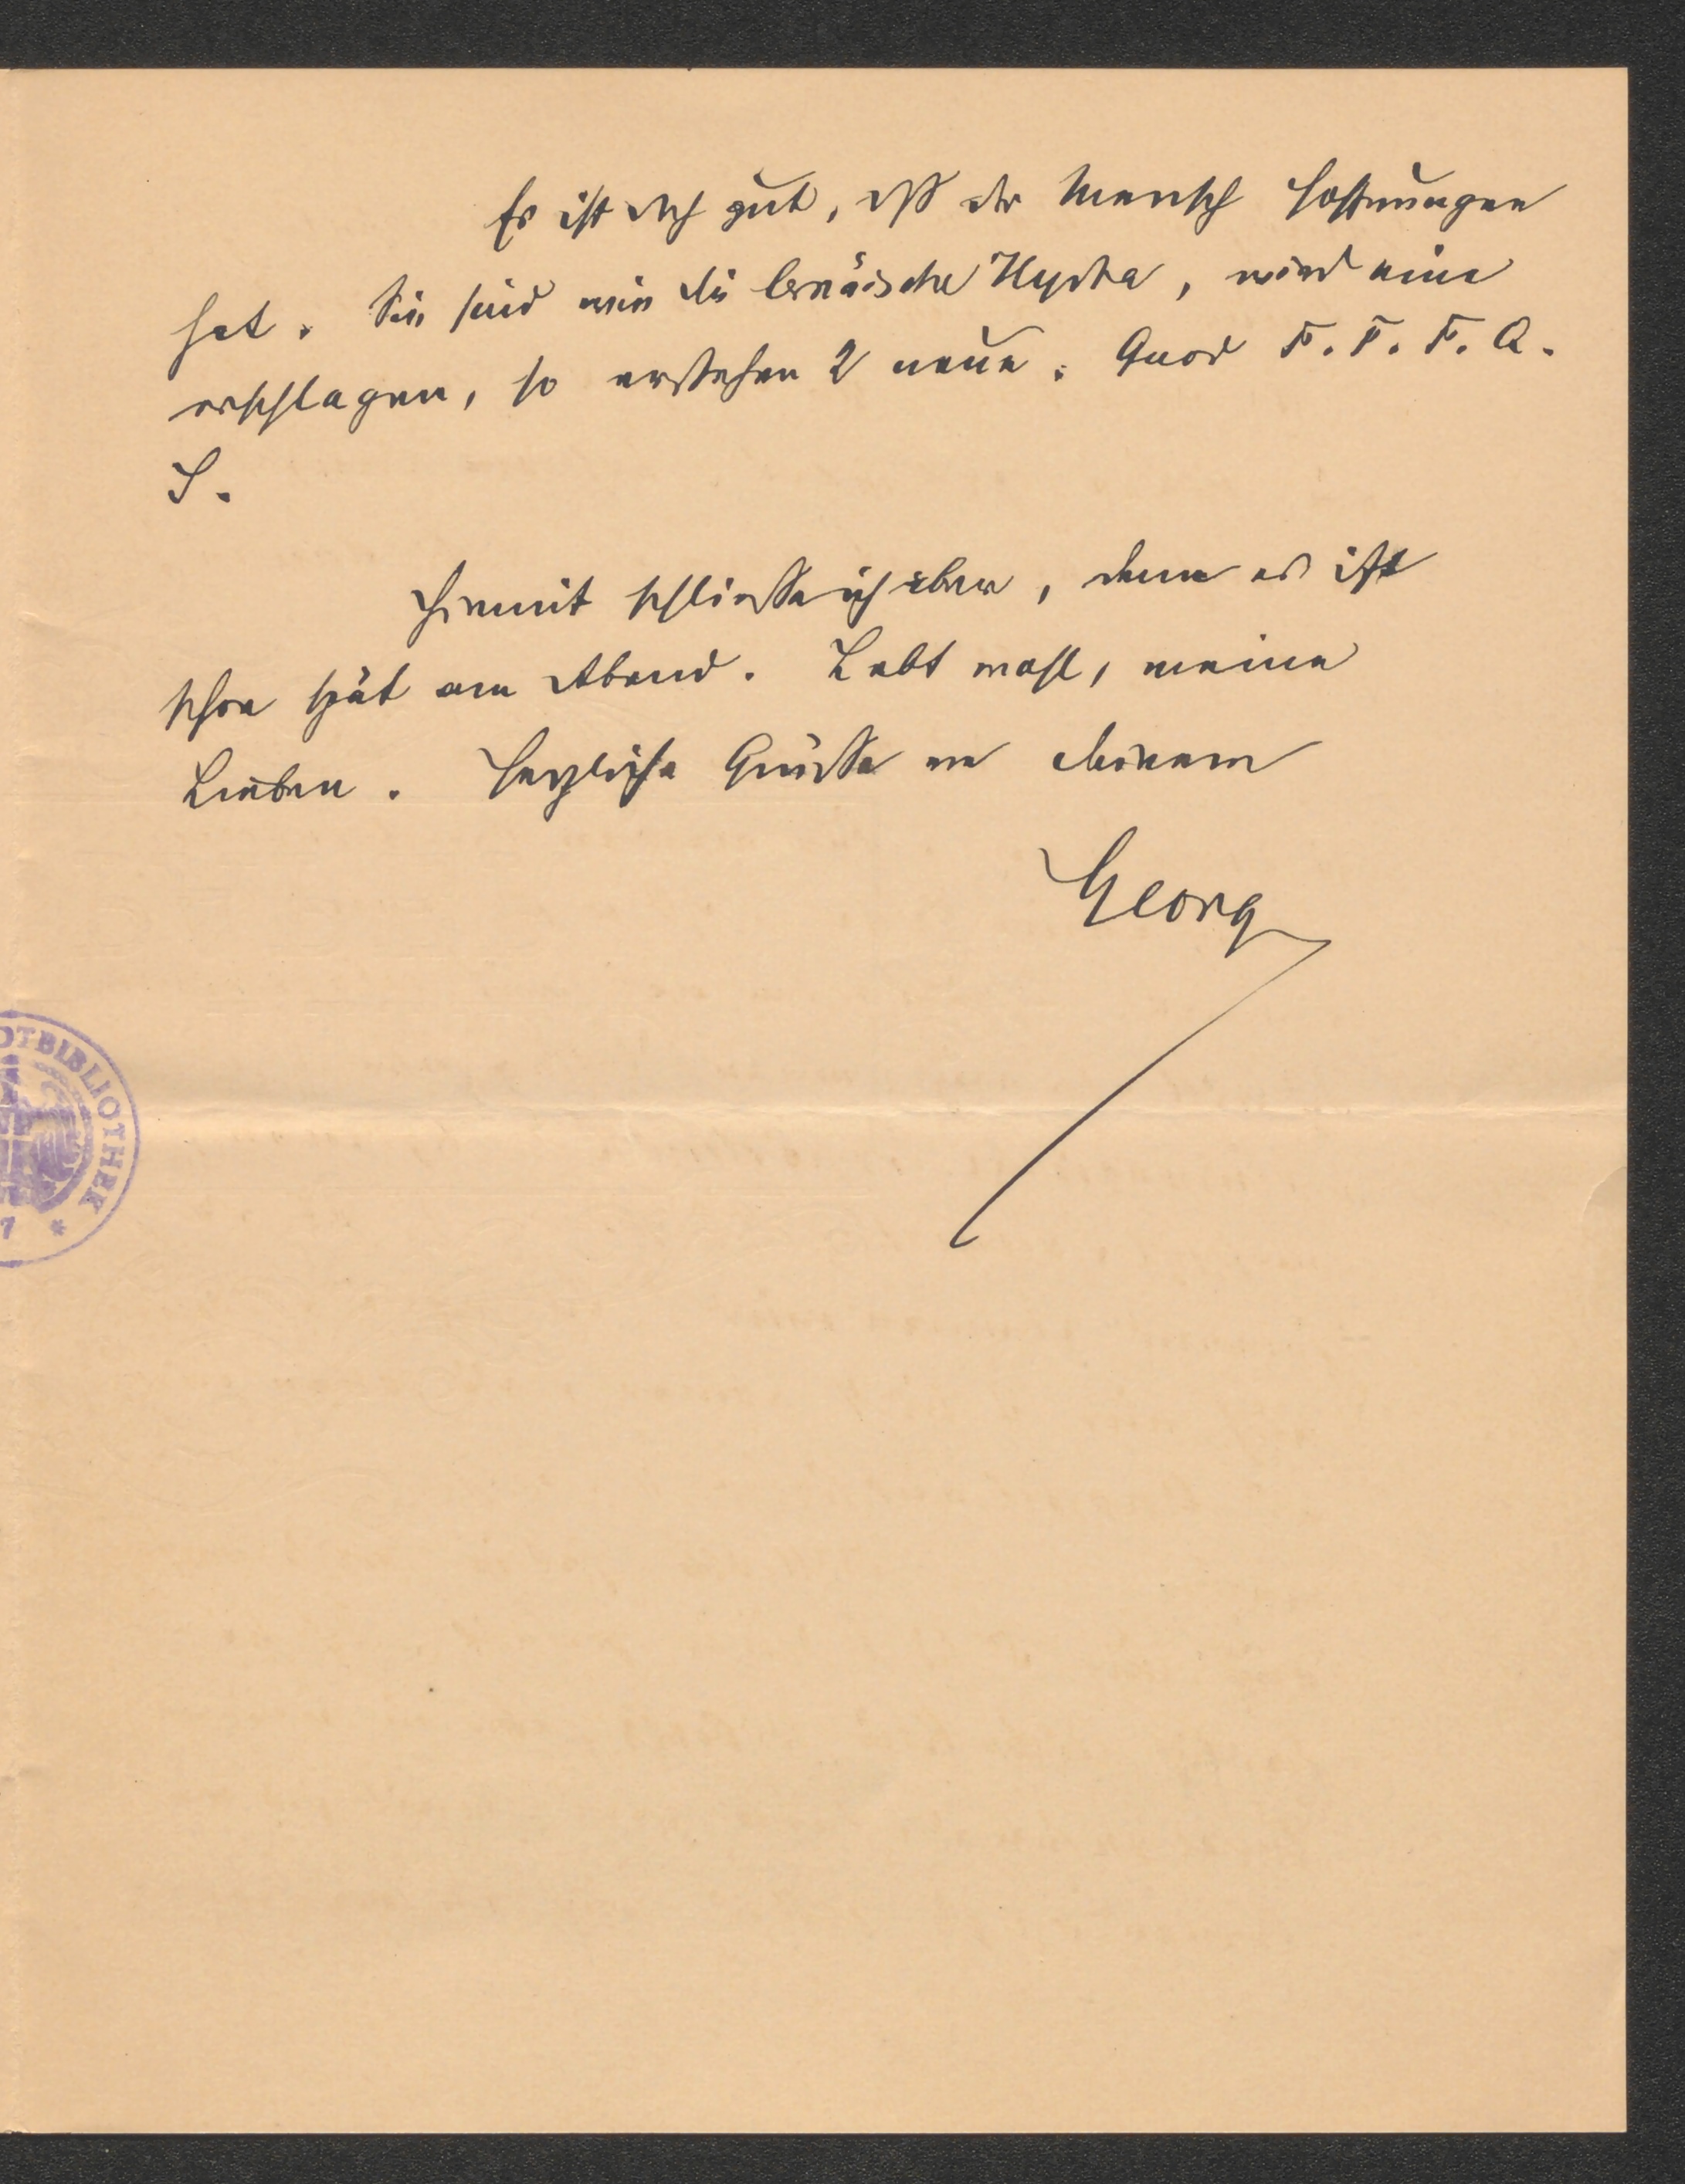 Es ist doch gut, daß der Mensch Hoffnungen
hat. Sie sind wie die lernäische Hydra, wird eine
erschlagen, so erstehen 2 neue. Quod F. F. F. Q.
S.
Hiermit schließe ich aber, denn es ist
schon spät am Abend. Lebt wohl, meine
Lieben. Herzliche Grüße von
Georg
OTBIBLIOTHEK
7 *